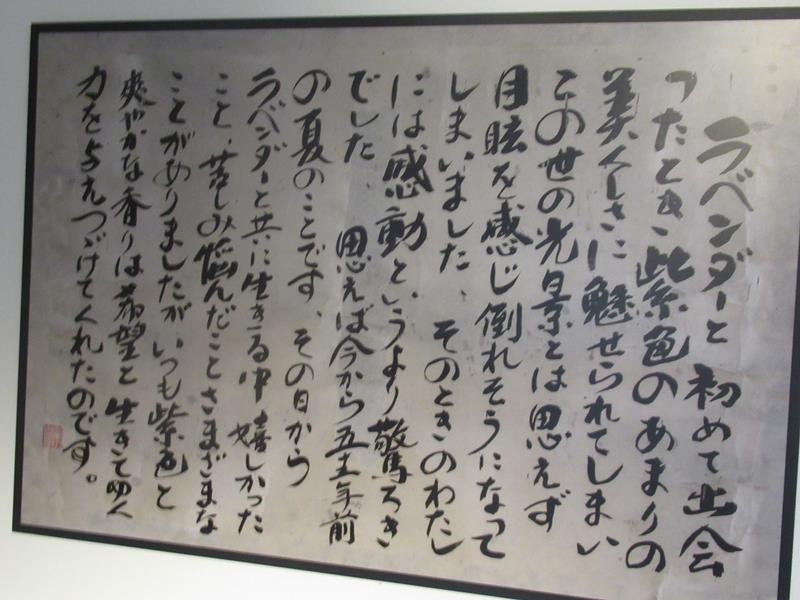 ラベンダーと初めて出会
ったとき紫色のあまりの
美くしさに魅せられてしまい
この世の光景とは思えず
目眩を感じ倒れそうになって
しまいました、そのときのわたし
には感動というより驚ろき
でした、思えば今から五十年前
の夏のことです、その日から
ラベンダーと共に生きる中嬉しかった
こと、苦しみ悩んだことさまざまな
ことがありましたがいつも紫色と
爽やかな香りは希望と生きてゆく
力を与えつづけてくれたのです。